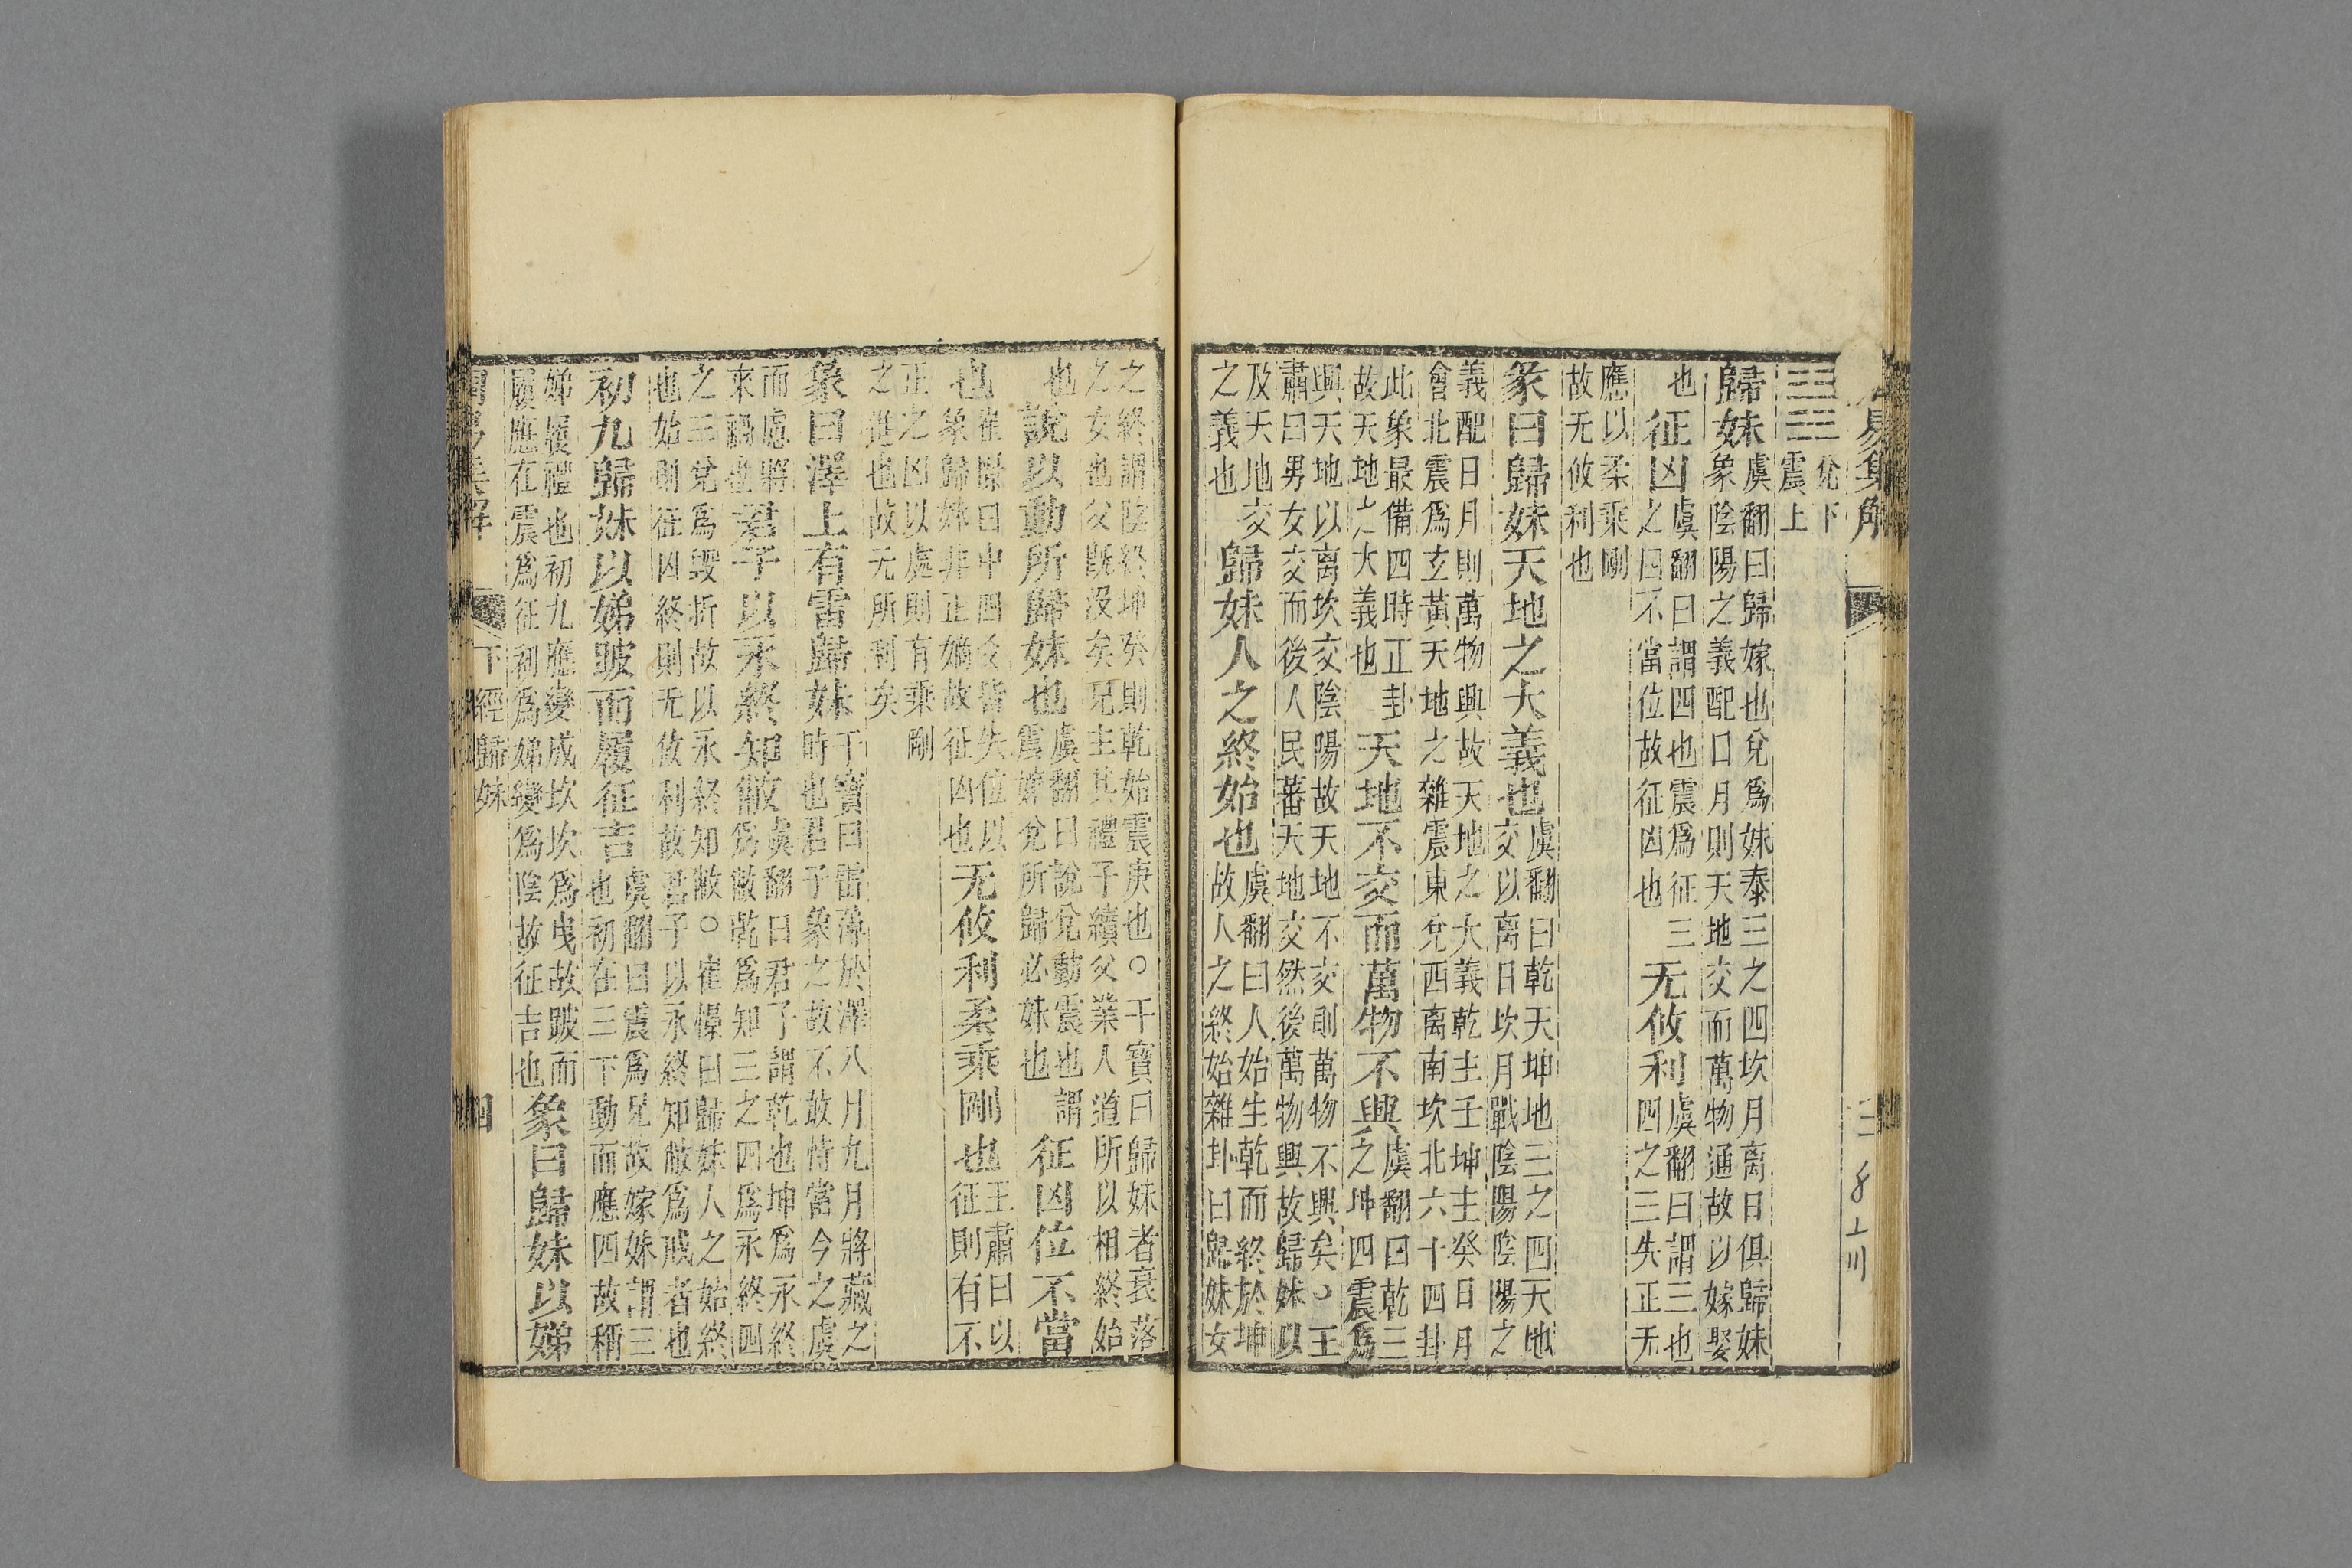 易集解
兌下
震上
歸妹虞翻曰歸嫁也兌爲妹泰三之四坎月離日俱歸妹
象陰陽之義配日月則天地交而萬物通故以嫁娶
也征凶虞翻曰謂四也震爲征三
之四不當位故征凶也无攸利虞翻曰謂三也
四之三失正无
應以柔乘剛
故无攸利也
彖曰歸妹天地之大義也虞翻曰乾天坤地三之四天地
交以离日坎月戰陰陽陰陽之
義配日月則萬物興故天地之大義乾主壬坤主癸日月
會北震爲玄黃天地之雜震東兌西离南坎北六十四卦
此象最備四時正卦
故天地之大義也天地不交而萬物不興虞翻曰乾三
之坤四震爲
興天地以离坎交陰陽故天地不交則萬物不興矣○王
肅曰男女交而後人民蕃天地交然後萬物興故歸妹以
及天地交
之義也歸妹人之終始也虞翻曰人始生乾而終於坤
故人之終始雜卦曰歸妹女
之終謂陰終坤癸則乾始震庚也○干寶曰歸妹者衰落
之女也父既沒矣兄主其禮子續父業人道所以相終始
也說以動所歸妹也虞翻曰說兌動震也謂
震嫁兌所歸必妹也征凶位不當
也崔憬曰中四爻皆失位以
象歸妹非正嫡故征凶也无攸利柔乘剛也王肅曰以
征則有不
正之凶以處則有乘剛
之逆也故无所利矣
象曰澤上有雷歸妹干寶曰雷薄於澤八月九月將藏之
時也君子象之故不敢恃當今之虞
而慮將
來禍也君子以永終知敝虞翻曰君子謂乾也坤爲永終
爲敝乾爲知三之四爲永終四
之三兌爲毀折故以永終知敝○崔憬曰歸妹人之始終
也始則征凶終則无攸利故君子以永終知敝爲戒者也
初九歸妹以娣跛而履征吉虞翻曰震爲兄故嫁妹謂三
也初在三下動而應四故稱
娣履禮也初九應變成坎坎爲曳故跛而
履應在震爲征初爲娣變爲陰故征吉也象曰歸妹以娣
周易集解 下經歸妹 四